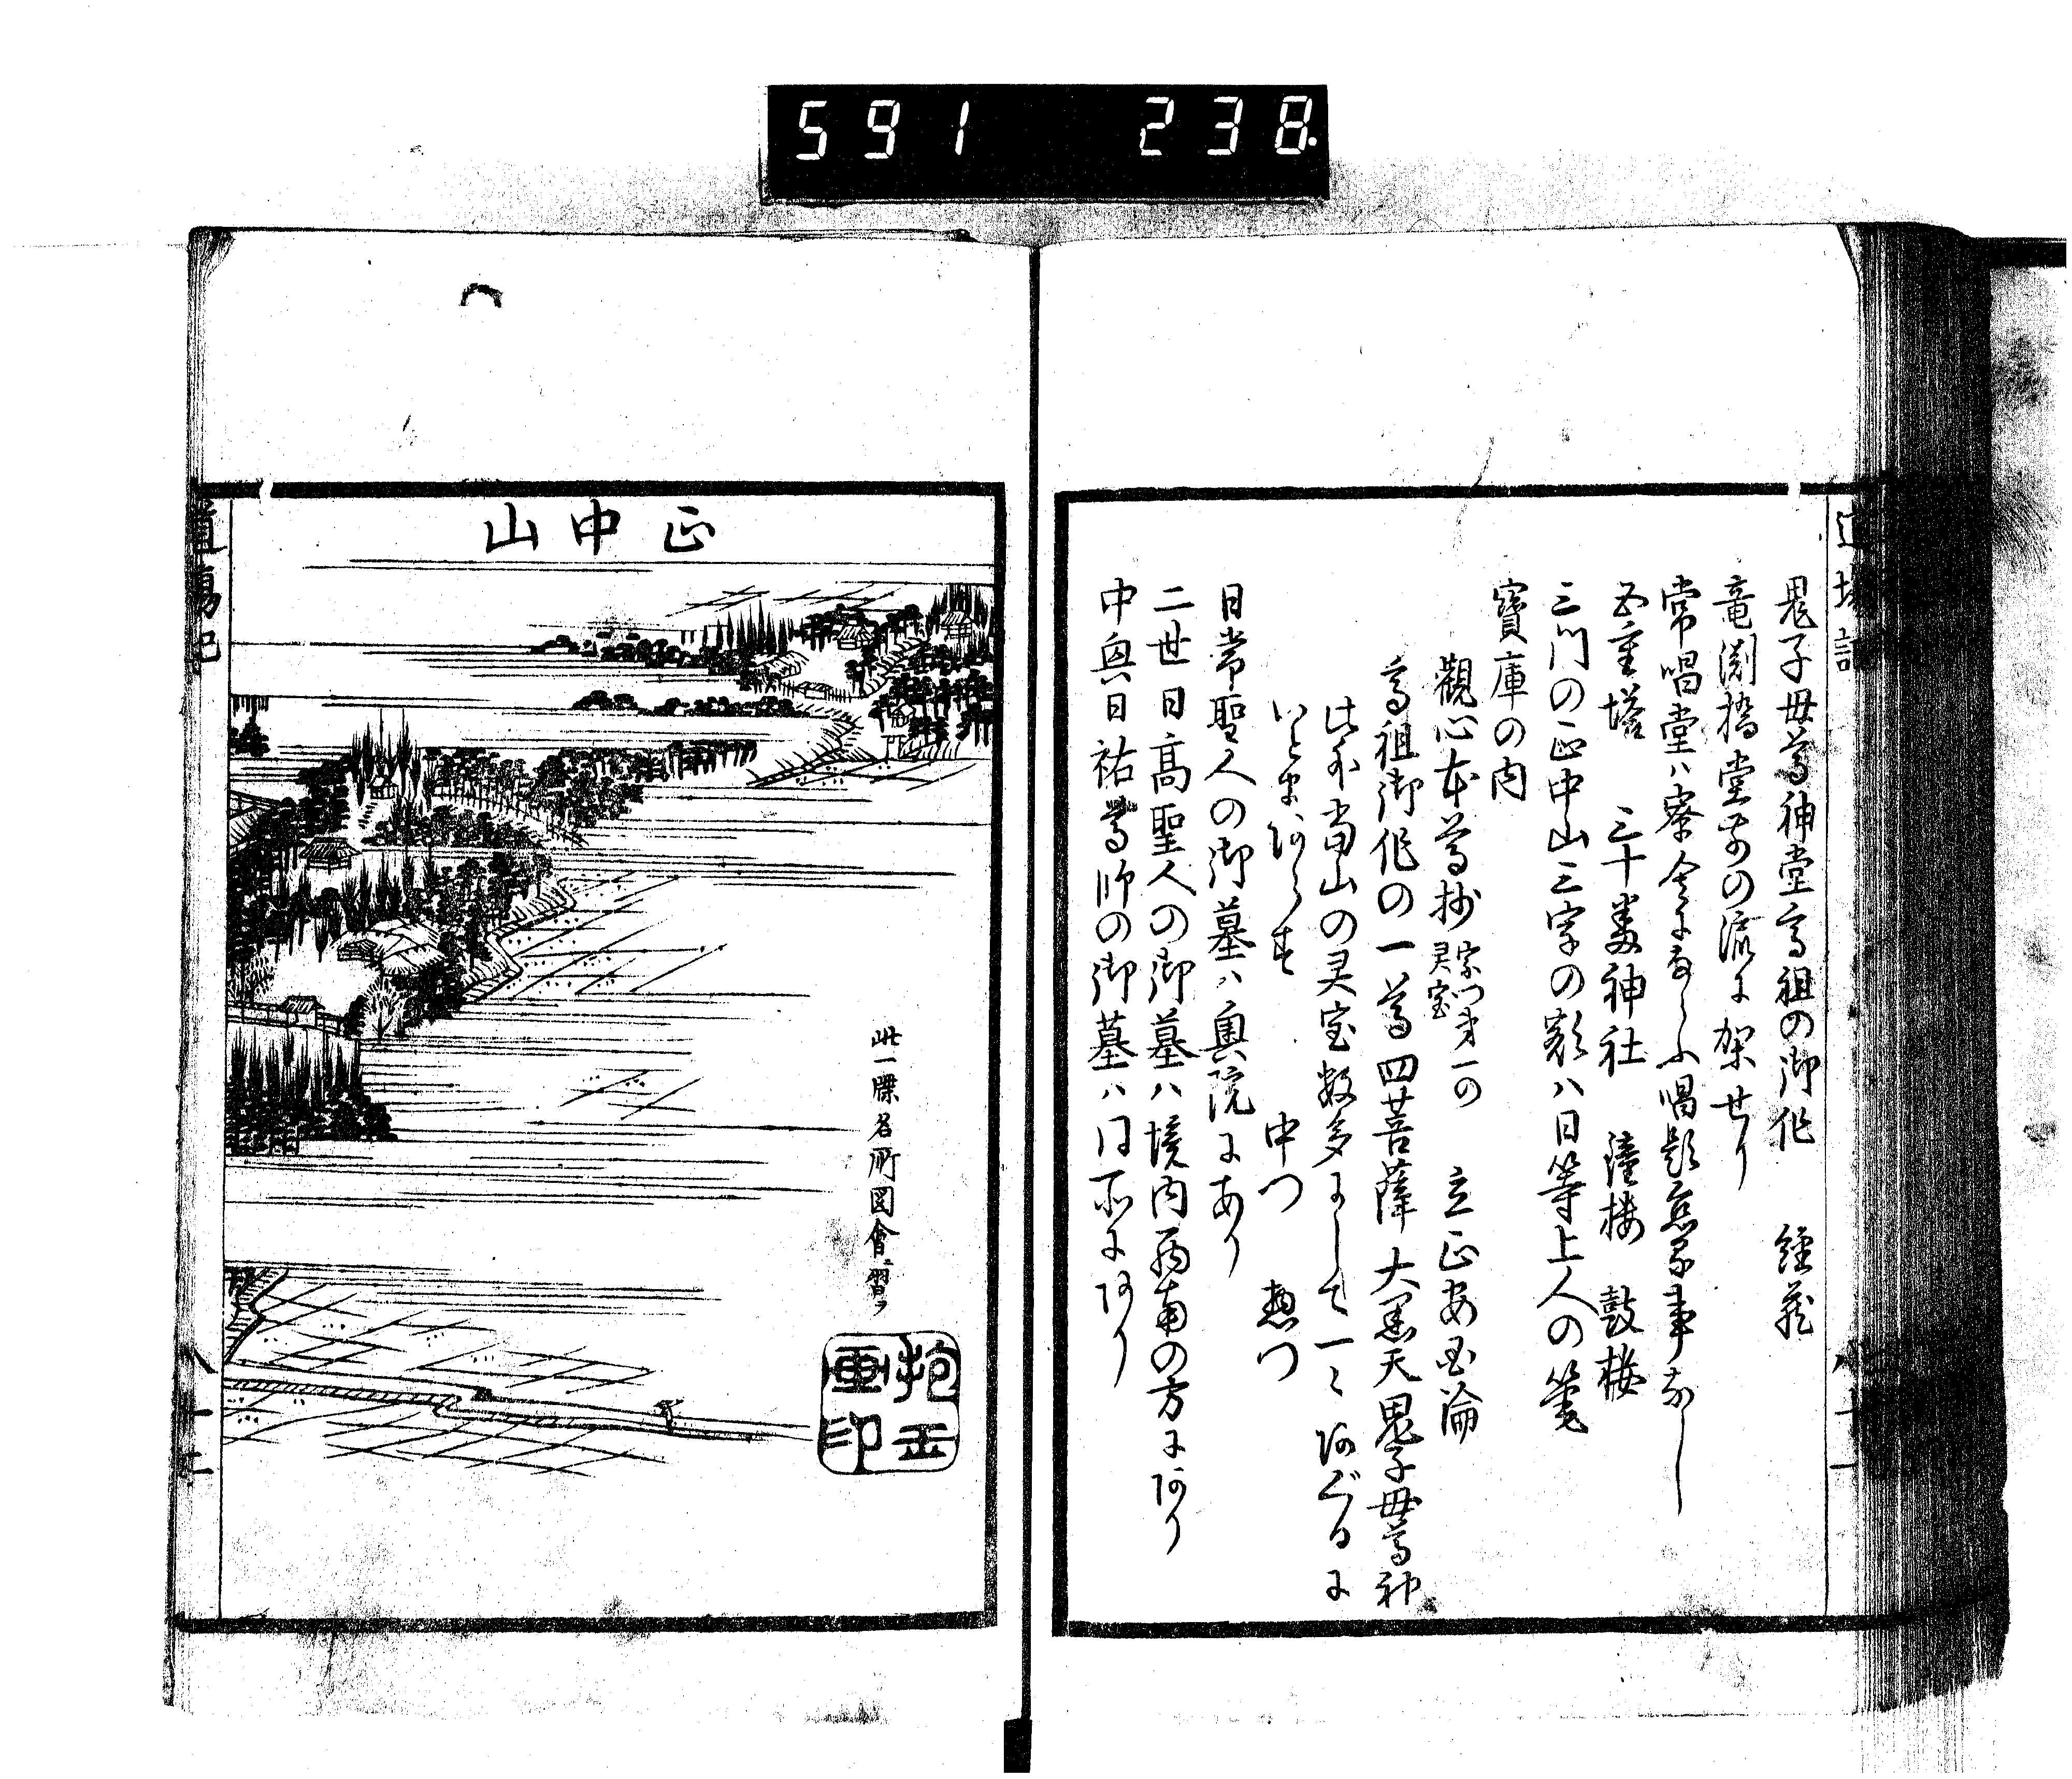 591 238
道場記
八十一
鬼子母尊神堂高祖の御作 経蔵
竜渕橋堂前の流に架せり
常唱堂ハ寮舎にならふ唱題無間事なし
五重塔 三十番神社 鐘楼 鼓楼
三門の正中山三字の額ハ日等上人の筆
寳庫の内
觀心本尊抄 宗門第一の灵宝 立正安国論
高祖御作の一尊四菩薩大黒天鬼子母尊神
此外当山の灵宝数多にして一々あぐるに
いとまあらす 中つ 惣つ
日常聖人の御墓ハ奥院にあり
二世日高聖人の御墓ハ境内西南の方にあり
中興日祐尊師の御墓ハ同所にあり
正中山
此一牒名所図會ニ習フ
抱玉
画印
道場記
八十二